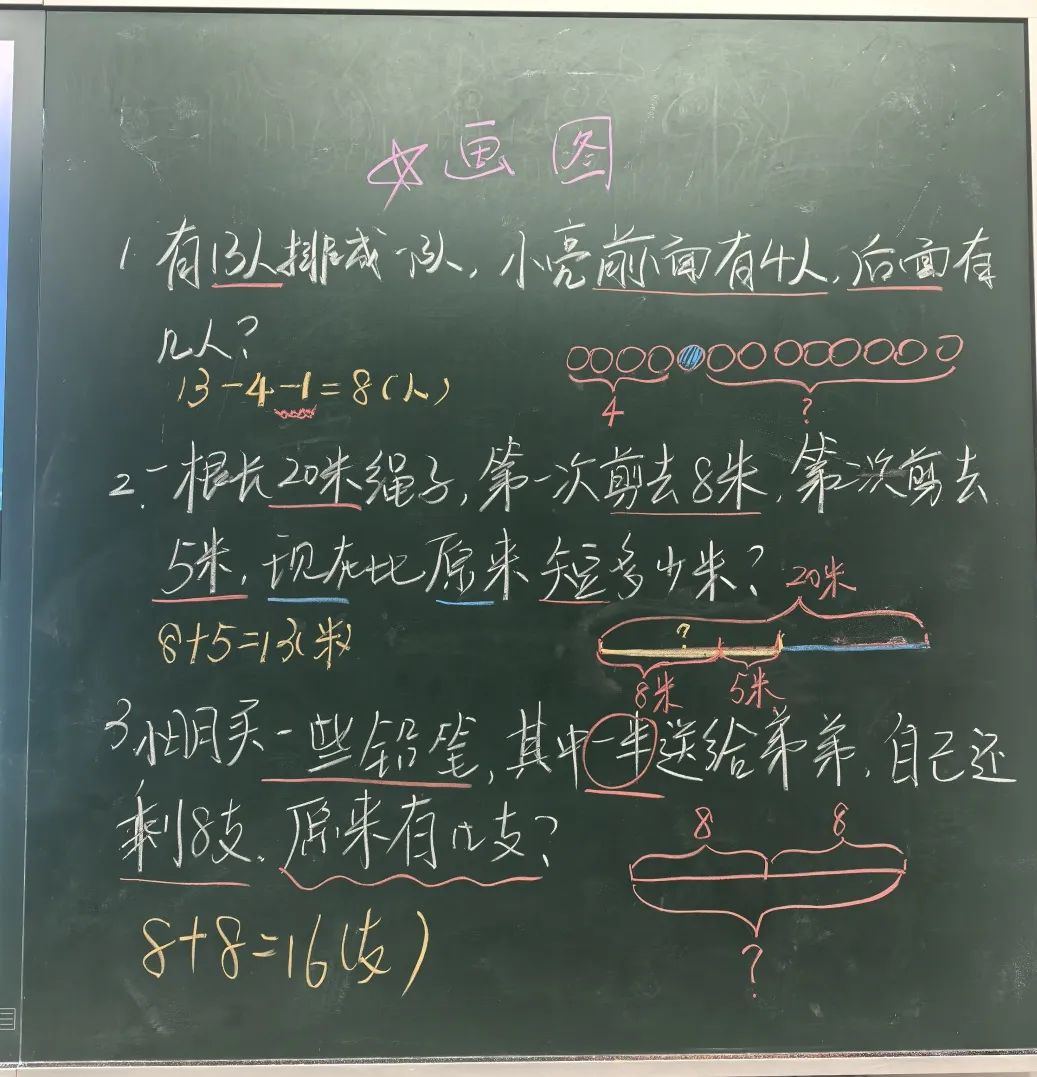 ☆画图
1 有13人排成一队,小亮前面有4人,后面有
几人?
13-4-1=8(人)
4
?
2.一根长20米绳子,第一次剪去8米,第二次剪去
5米,现在比原来短多少米?
20米
8+5=13(米)
?
8米 5米
3小明买一些铅笔,其中一半送给弟弟,自己还
剩8支,原来有几支?
8 8
8+8=16(支)
?